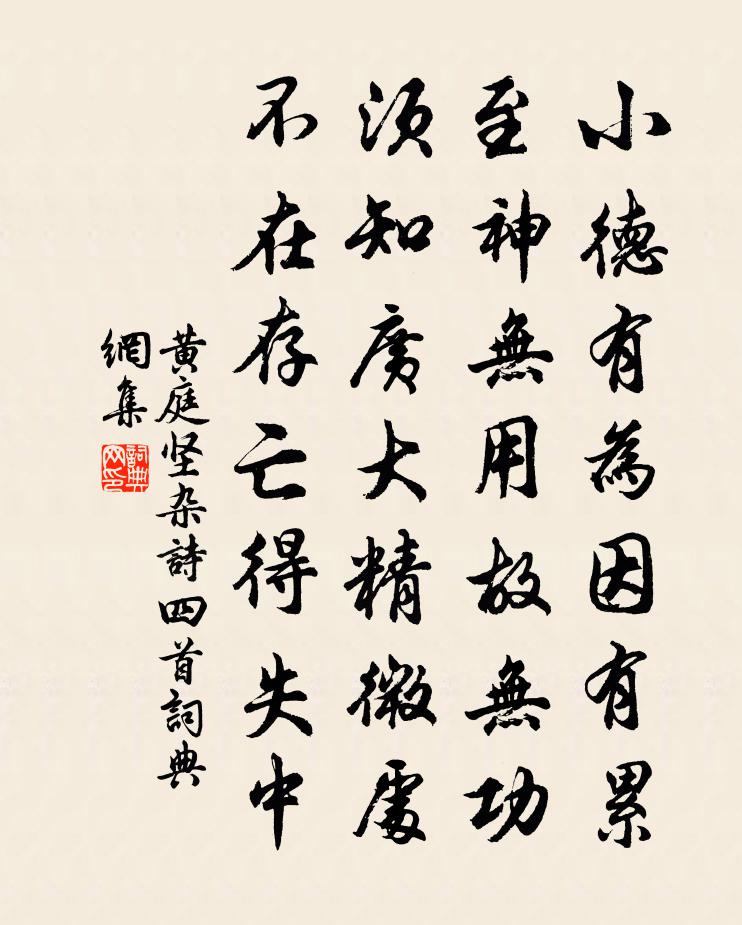 小德有為因有累
至神無用故無功
須知廣大精微處
不在存亡得失中
黄庭坚杂詩四首詞典
網集
詞典
网印